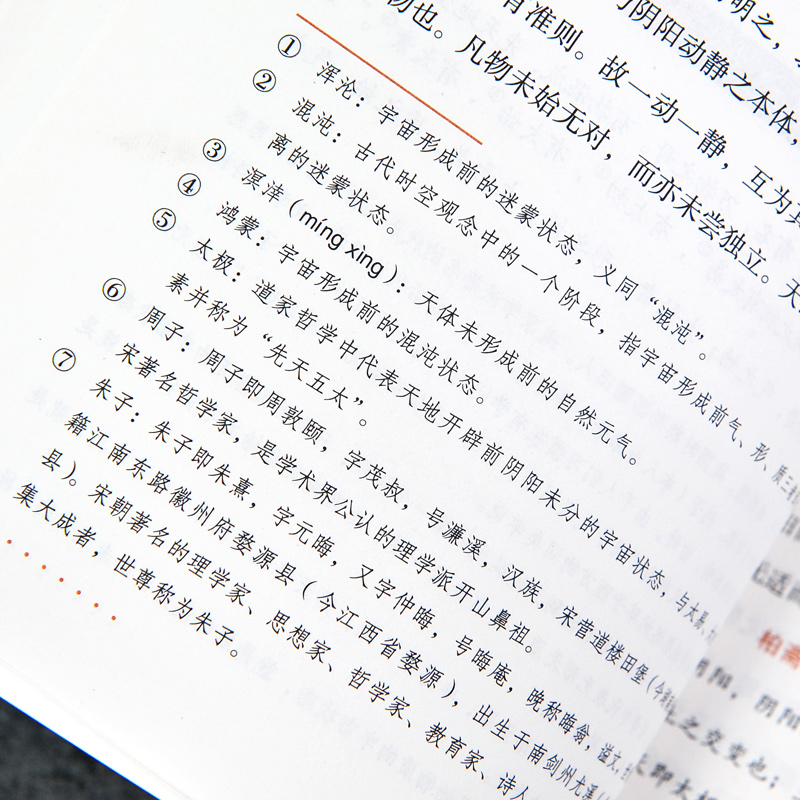 明之，
与阴阳动静之本体，
有准则。故一动一静，互为其
物也。凡物未始无对，而亦未尝独立。天
① 浑沦：宇宙形成前的迷蒙状态，义同“混沌”。
② 混沌：古代时空观念中的一个阶段，指宇宙形成前气、形、质三者
离的迷蒙状态。
③ 溟涬（míng xìng）：天体未形成前的自然元气。
④ 鸿蒙：宇宙形成前的混沌状态。
⑤ 太极：道家哲学中代表天地开辟前阴阳未分的宇宙状态，与太易、
素并称为“先天五太”。
⑥ 周子：周子即周敦颐，字茂叔，号濂溪，汉族，宋营道楼田堡（今
宋著名哲学家，是学术界公认的理学派开山鼻祖。
⑦ 朱子：朱子即朱熹，字元晦，又字仲晦，号晦庵，晚称晦翁，谥文，
籍江南东路徽州府婺源县（今江西省婺源），出生于南剑州尤溪（
县）。宋朝著名的理学家、思想家、哲学家、教育家、诗人
集大成者，世尊称为朱子。
阴阳，阴阳
之交变也；
即太极